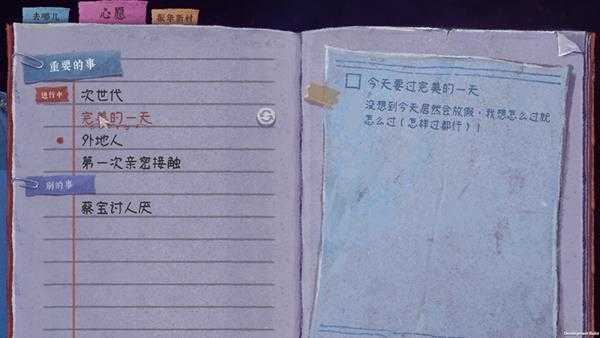 去哪儿
心愿
重要的事
进行中
次世代
完美的一天
外地人
第一次亲密接触
别的事
蔡宝讨人厌
今天要过完美的一天
没想到今天居然会放假,我想怎么过就
怎么过(怎样过都行)!
Development Build